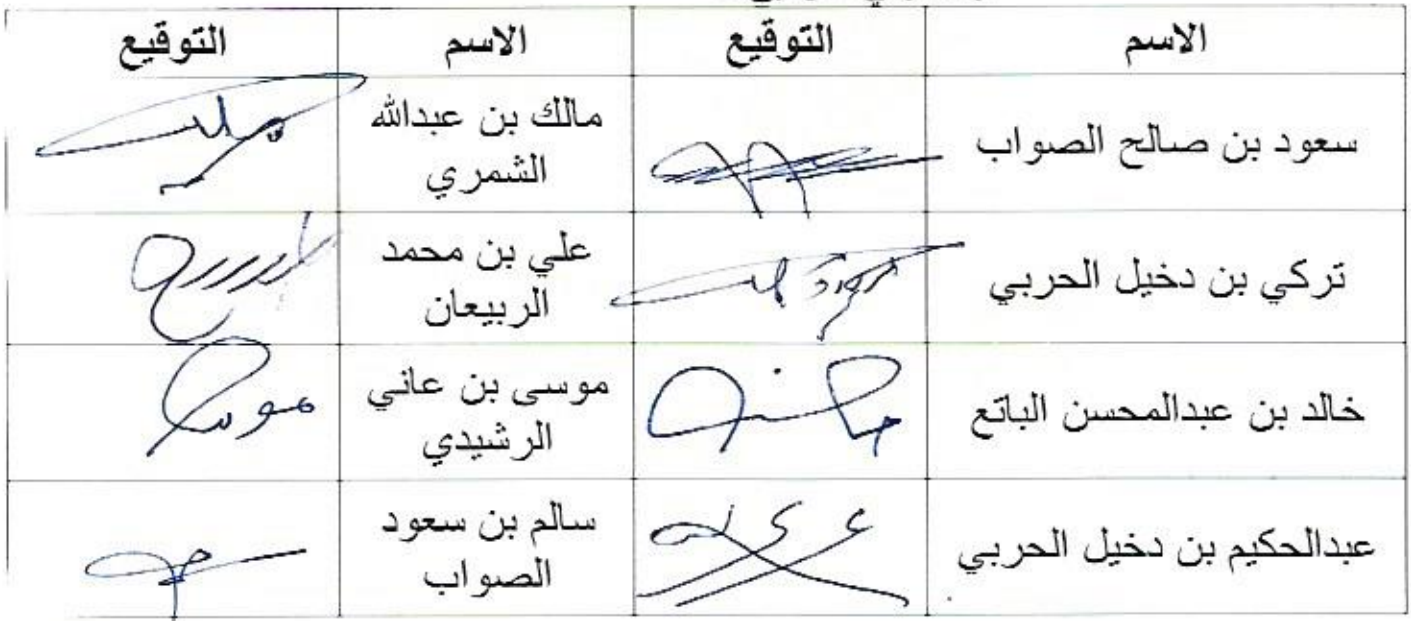 الاسم التوقيع الاسم التوقيع
سعود بن صالح الصواب
مالك بن عبدالله
الشمري
تركي بن دخيل الحربي
علي بن محمد
الربيعان
خالد بن عبدالمحسن الباتع
موسى بن عاني
الرشيدي
عبدالحكيم بن دخيل الحربي
سالم بن سعود
الصواب